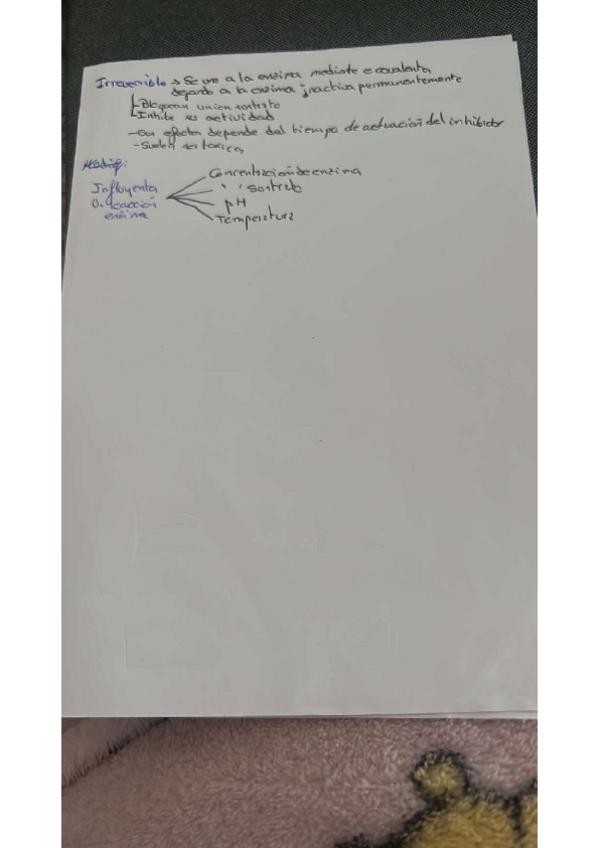 Irreversible → Se une a la enzima mediate e covalente,
dejando a la enzima inactiva permanentemente
Bloquean union sustrato
Inhibe su actividad
- Sus efectos depende del tiempo de actuación del inhibidor
- Suelen ser toxicos
Concentracion de enzima
Influyenta
" " Sustrato
en acción
pH
enzima
Temperatura